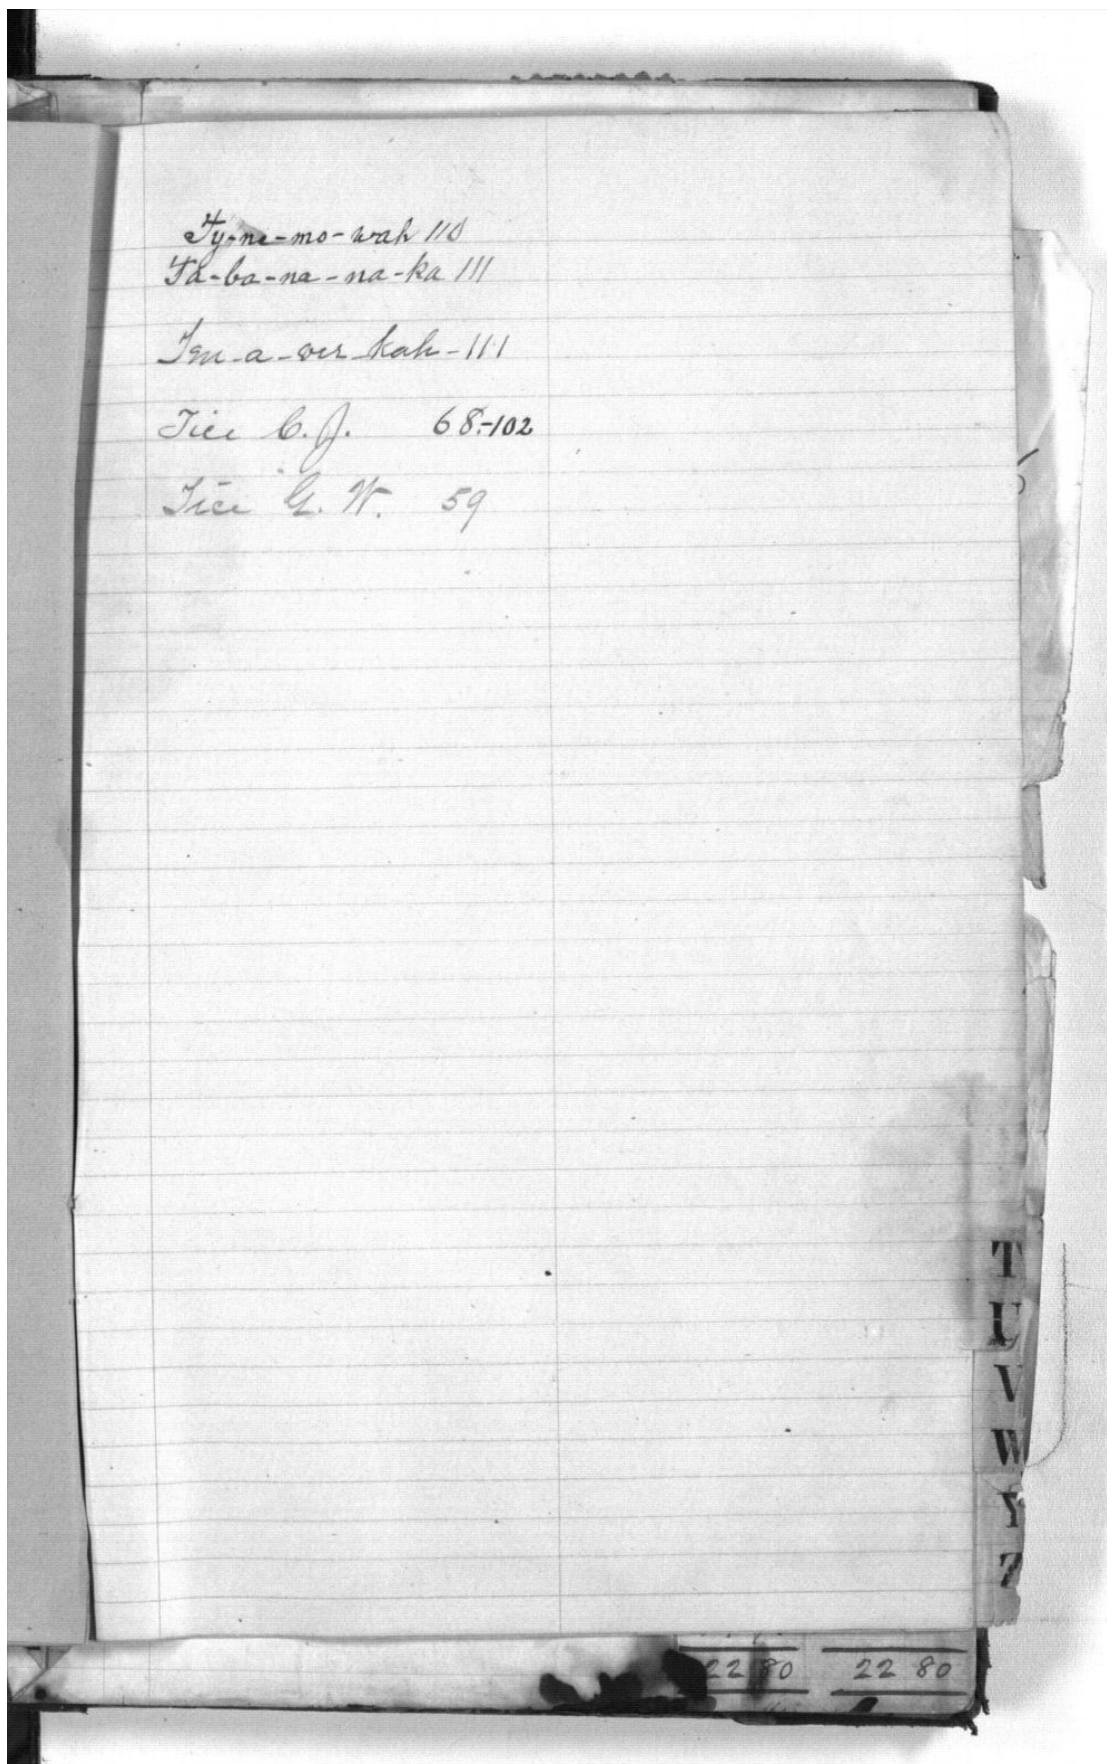 Ty-ne-mo-wah 110
Ta-ba-na-na-ka 111
Tem-a-ver-kah-111
Tice C. J. 68-102
Tice G. W. 59
T
U
V
W
Y
Z
22 80 22 80